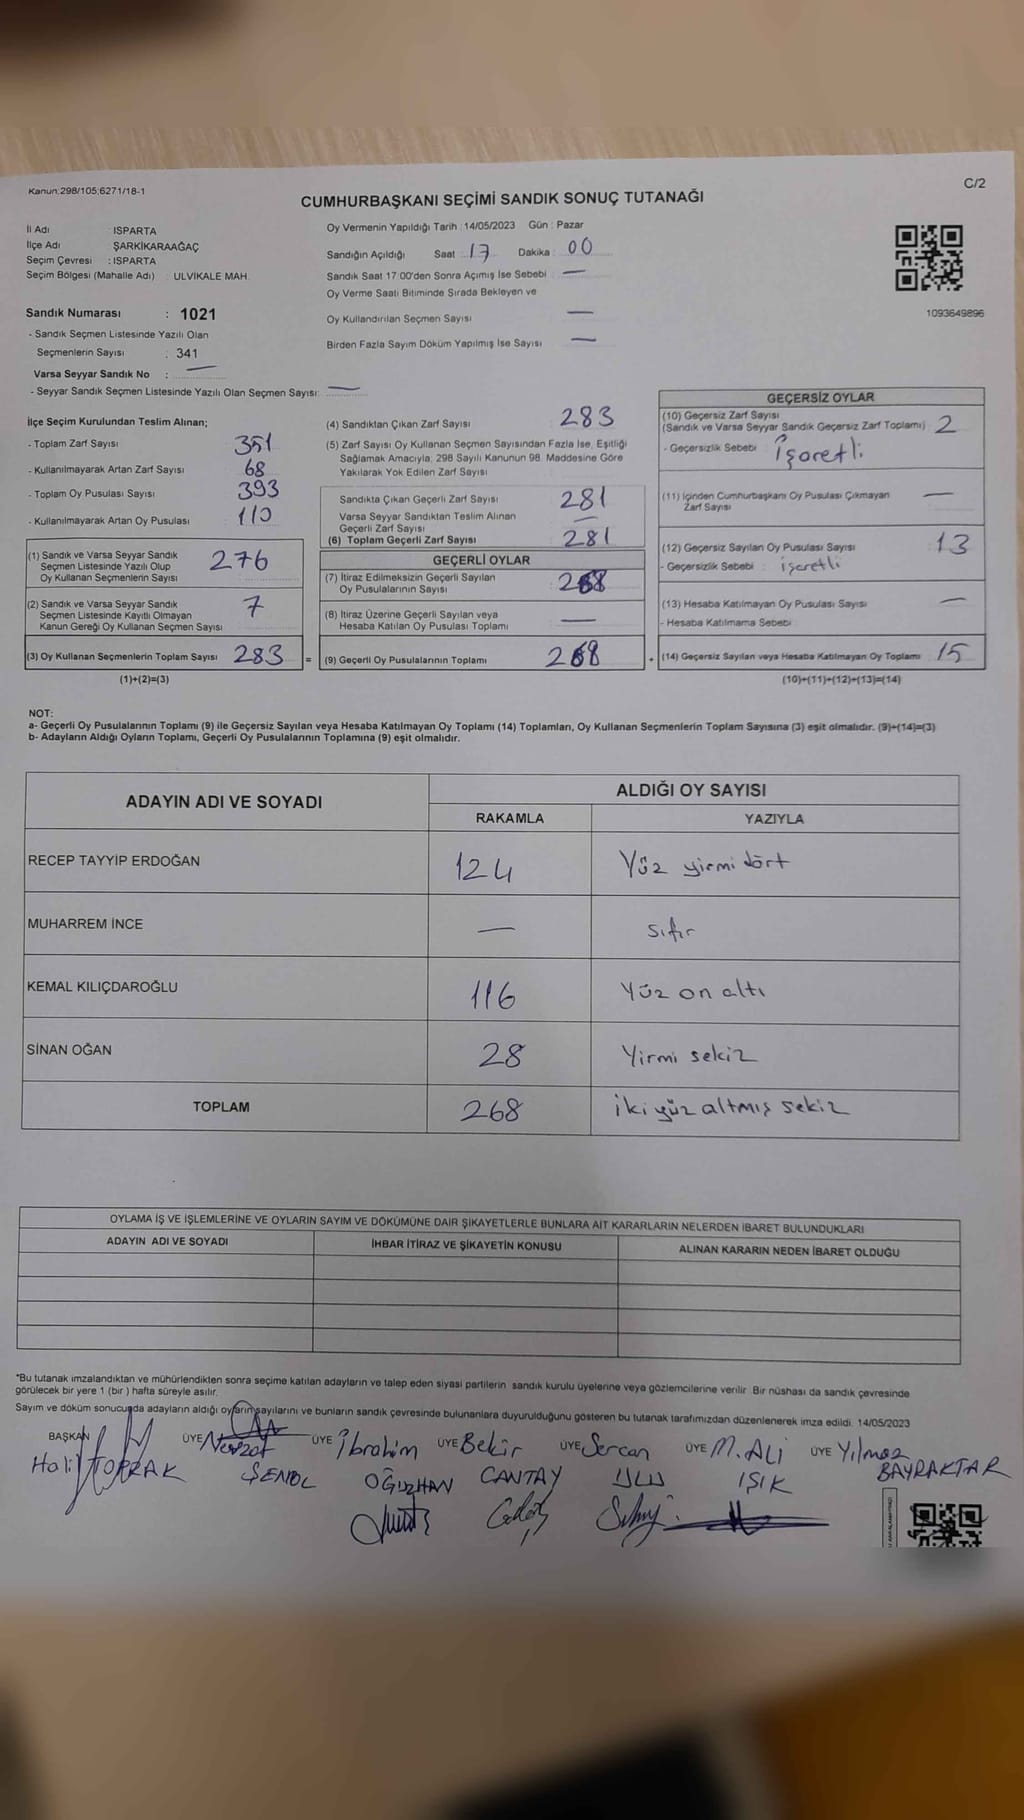 Kanun;298/105;6271/18-1
C/2
CUMHURBAŞKANI SEÇİMİ SANDIK SONUÇ TUTANAĞI
İl Adı : ISPARTA
İlçe Adı : ŞARKİKARAAĞAÇ
Seçim Çevresi : ISPARTA
Seçim Bölgesi (Mahalle Adı) : ULVIKALE MAH.
Sandık Numarası : 1021
- Sandık Seçmen Listesinde Yazılı Olan
Seçmenlerin Sayısı : 341
Varsa Seyyar Sandık No : —
- Seyyar Sandık Seçmen Listesinde Yazılı Olan Seçmen Sayısı: —
Oy Vermenin Yapıldığı Tarih :14/05/2023 Gün : Pazar
Sandığın Açıldığı Saat : 17 Dakika : 00
Sandık Saat 17:00'den Sonra Açımış İse Sebebi : —
Oy Verme Saati Bitiminde Sırada Bekleyen ve
Oy Kullandırılan Seçmen Sayısı —
Birden Fazla Sayım Döküm Yapılmış İse Sayısı —
1093649896
İlçe Seçim Kurulundan Teslim Alınan;
- Toplam Zarf Sayısı 351
- Kullanılmayarak Artan Zarf Sayısı 68
- Toplam Oy Pusulası Sayısı 393
- Kullanılmayarak Artan Oy Pusulası 110
(1) Sandık ve Varsa Seyyar Sandık
Seçmen Listesinde Yazılı Olup
Oy Kullanan Seçmenlerin Sayısı 276
(2) Sandık ve Varsa Seyyar Sandık
Seçmen Listesinde Kayıtlı Olmayan
Kanun Gereği Oy Kullanan Seçmen Sayısı 7
(3) Oy Kullanan Seçmenlerin Toplam Sayısı 283 =
(1)+(2)=(3)
(4) Sandıktan Çıkan Zarf Sayısı 283
(5) Zarf Sayısı Oy Kullanan Seçmen Sayısından Fazla İse, Eşitliği
Sağlamak Amacıyla; 298 Sayılı Kanunun 98. Maddesine Göre
Yakılarak Yok Edilen Zarf Sayısı
Sandıkta Çıkan Geçerli Zarf Sayısı 281
Varsa Seyyar Sandıktan Teslim Alınan
Geçerli Zarf Sayısı —
(6) Toplam Geçerli Zarf Sayısı 281
GEÇERLİ OYLAR
(7) İtiraz Edilmeksizin Geçerli Sayılan
Oy Pusulalarının Sayısı 268
(8) İtiraz Üzerine Geçerli Sayılan veya
Hesaba Katılan Oy Pusulası Toplamı —
(9) Geçerli Oy Pusulalarının Toplamı 268 +
GEÇERSİZ OYLAR
(10) Geçersiz Zarf Sayısı
(Sandık ve Varsa Seyyar Sandık Geçersiz Zarf Toplamı) 2
- Geçersizlik Sebebi : İşaretli
(11) İçinden Cumhurbaşkanı Oy Pusulası Çıkmayan
Zarf Sayısı —
(12) Geçersiz Sayılan Oy Pusulası Sayısı 13
- Geçersizlik Sebebi : işaretli
(13) Hesaba Katılmayan Oy Pusulası Sayısı —
- Hesaba Katılmama Sebebi
(14) Geçersiz Sayılan veya Hesaba Katılmayan Oy Toplamı 15
(10)+(11)+(12)+(13)=(14)
NOT:
a- Geçerli Oy Pusulalarının Toplamı (9) ile Geçersiz Sayılan veya Hesaba Katılmayan Oy Toplamı (14) Toplamları, Oy Kullanan Seçmenlerin Toplam Sayısına (3) eşit olmalıdır. (9)+(14)=(3)
b- Adayların Aldığı Oyların Toplamı, Geçerli Oy Pusulalarının Toplamına (9) eşit olmalıdır.
ADAYIN ADI VE SOYADI ALDIĞI OY SAYISI
RAKAMLA YAZIYLA
RECEP TAYYİP ERDOĞAN 124 Yüz yirmi dört
MUHARREM İNCE — sıfır
KEMAL KILIÇDAROĞLU 116 Yüz on altı
SİNAN OĞAN 28 Yirmi sekiz
TOPLAM 268 iki yüz altmış sekiz
OYLAMA İŞ VE İŞLEMLERİNE VE OYLARIN SAYIM VE DÖKÜMÜNE DAİR ŞİKAYETLERLE BUNLARA AİT KARARLARIN NELERDEN İBARET BULUNDUKLARI
ADAYIN ADI VE SOYADI İHBAR İTİRAZ VE ŞİKAYETİN KONUSU ALINAN KARARIN NEDEN İBARET OLDUĞU
*Bu tutanak imzalandıktan ve mühürlendikten sonra seçime katılan adayların ve talep eden siyasi partilerin sandık kurulu üyelerine veya gözlemcilerine verilir. Bir nüshası da sandık çevresinde
görülecek bir yere 1 (bir ) hafta süreyle asılır.
Sayım ve döküm sonucunda adayların aldığı oyların sayılarını ve bunların sandık çevresinde bulunanlara duyurulduğunu gösteren bu tutanak tarafımızdan düzenlenerek imza edildi. 14/05/2023
BAŞKAN ÜYE Nevzat ÜYE İbrahim ÜYE Bekir ÜYE Sercan ÜYE M. ALİ ÜYE Yılmaz
Halil TOPRAK ŞENOL OĞUZHAN CANTAY ULU IŞIK BAYRAKTAR